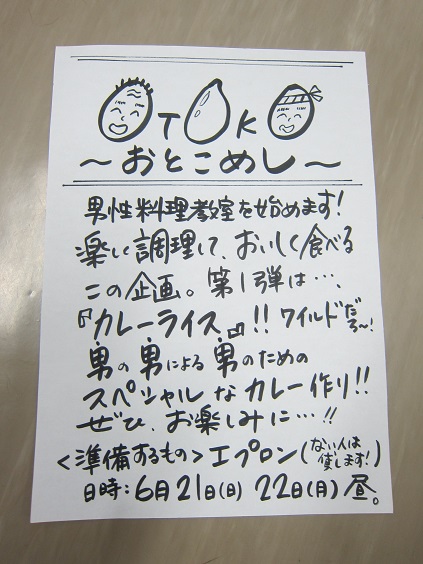 OTOKO
〜おとこめし〜
男性料理教室を始めます!
楽しく調理して、おいしく食べる
この企画。第1弾は…、
『カレーライス』!!ワイルドだろ〜!
男の男による男のための
スペシャルなカレー作り!!
ぜひ、お楽しみに…!!
<準備するもの>エプロン(ない人は貸します!)
日時:6月21日(日)22日(月)昼。